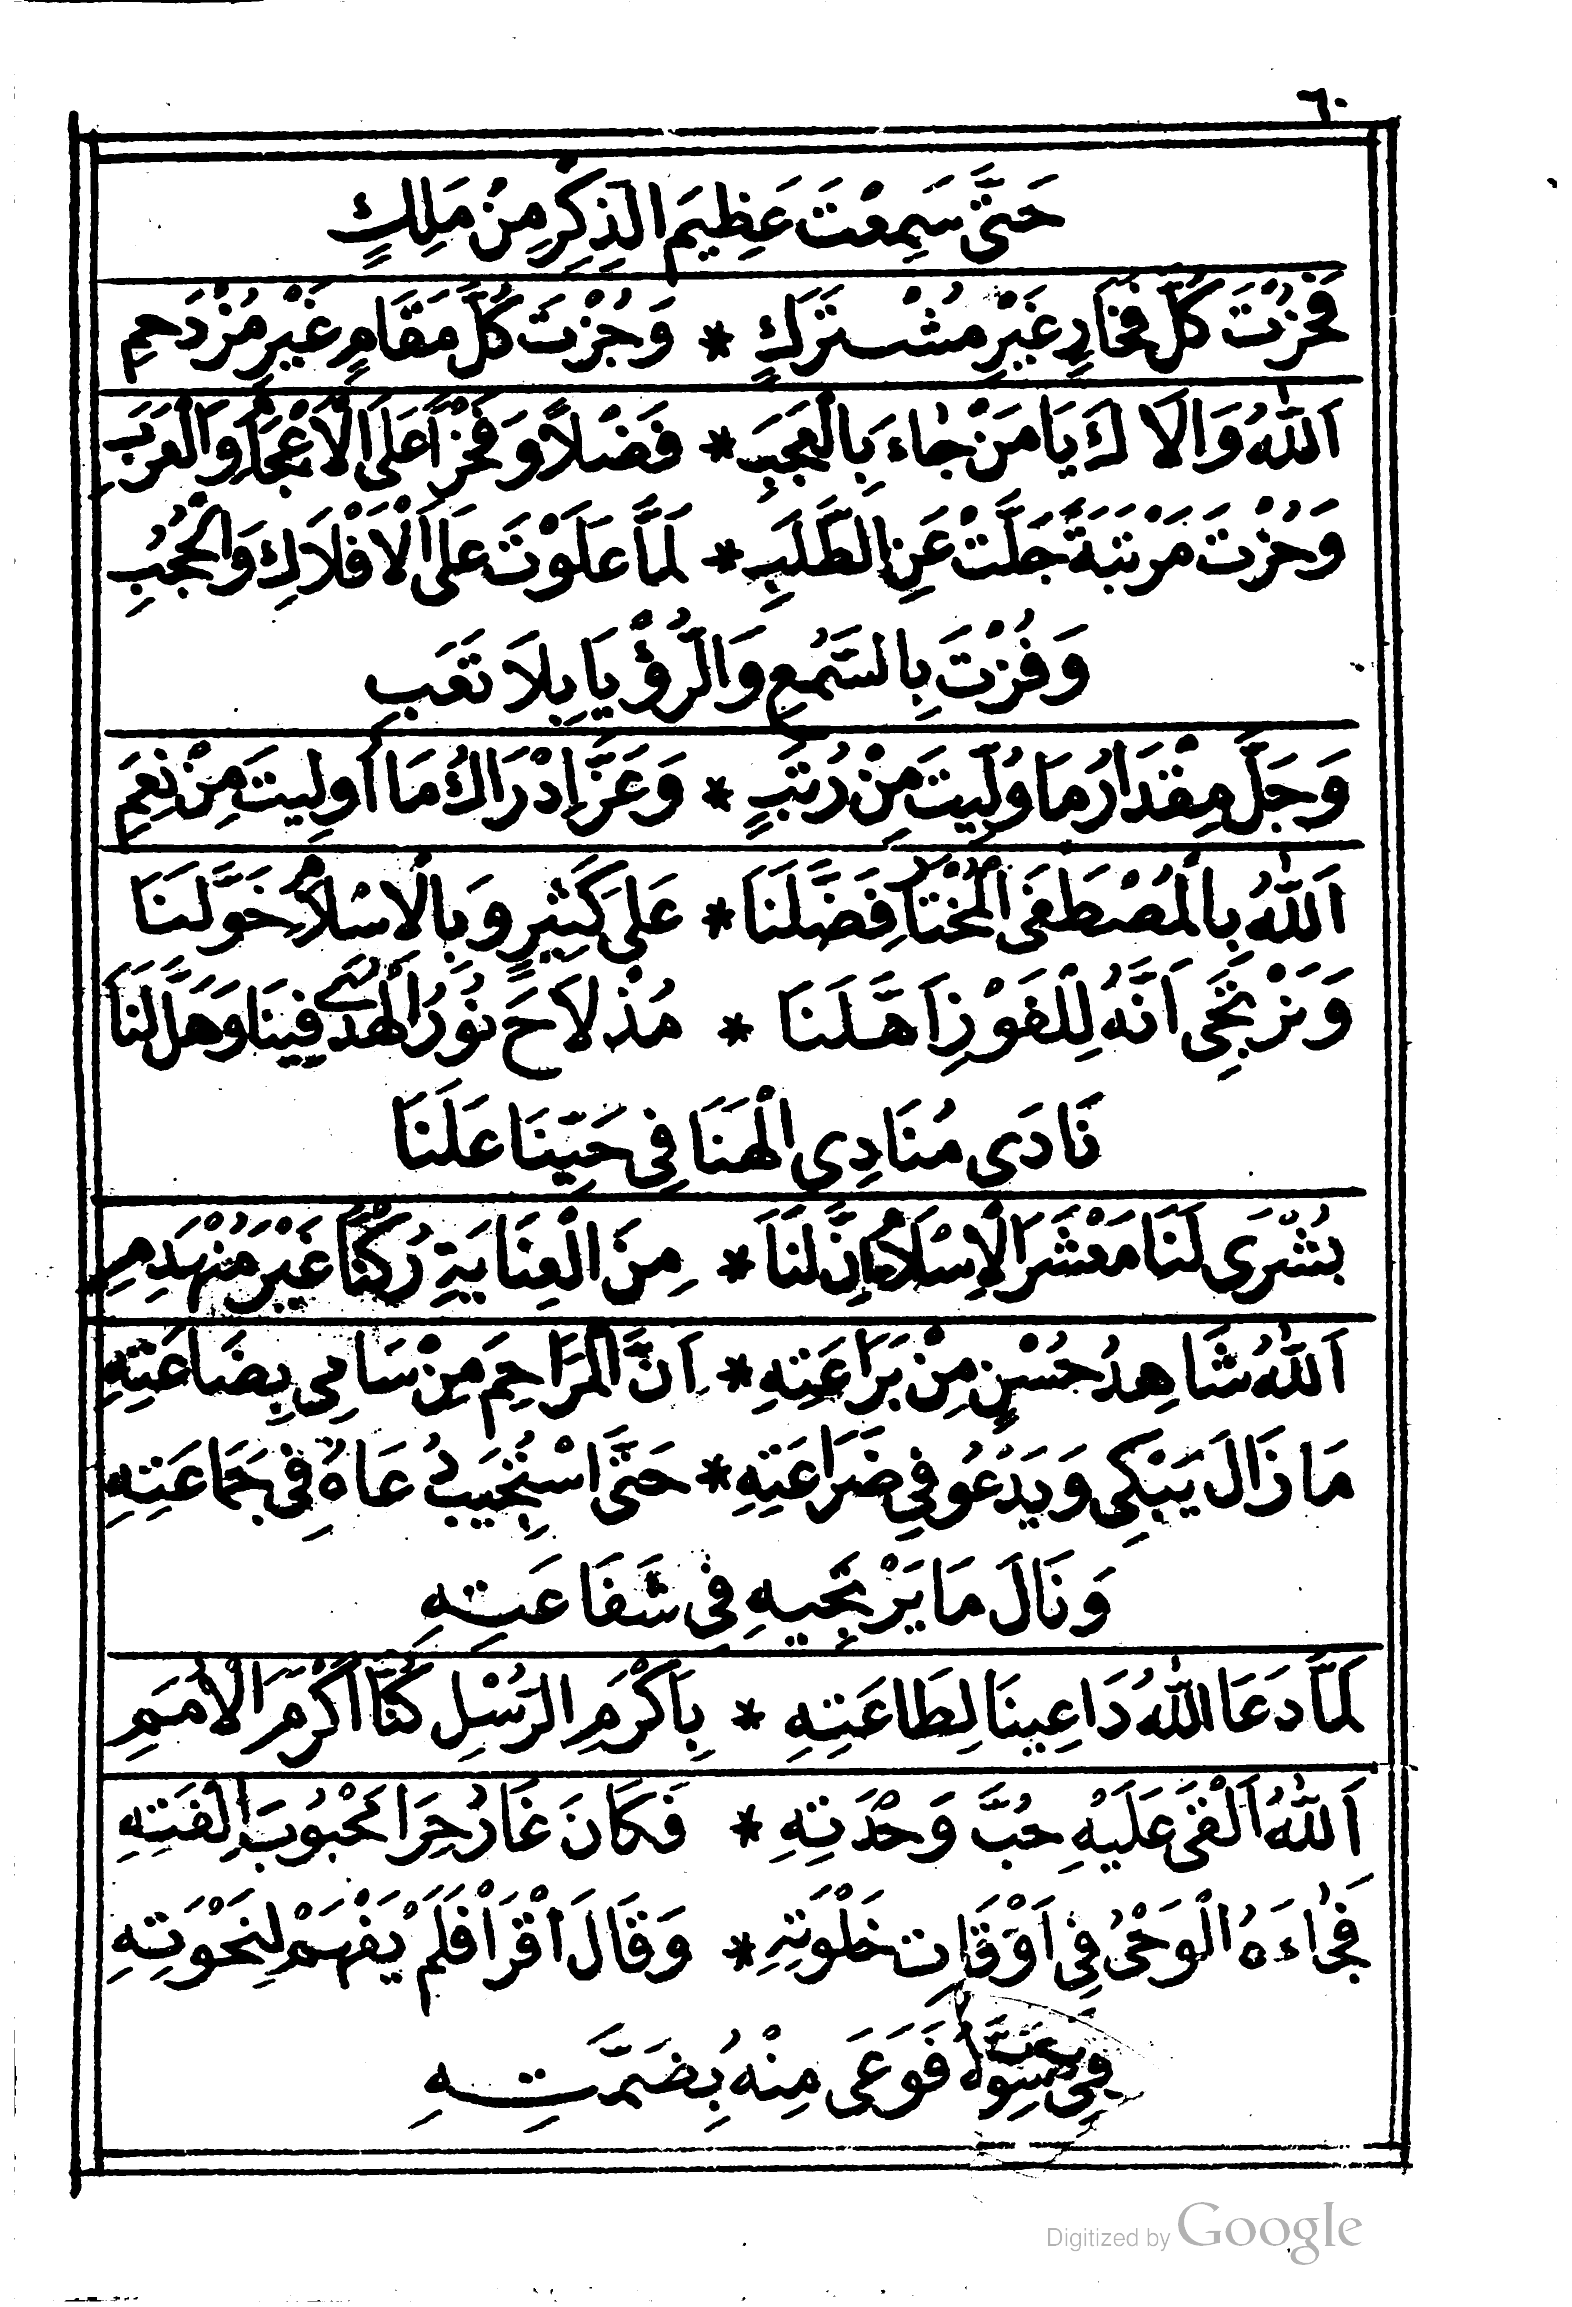 ٦٠
حَتَّى سَمِعْتَ عَظِيمَ الذِكْرِ مِنْ مَلِكٍ
فَحُزْتَ كُلَّ فَخَارٍ غَيْرِ مُشْتَرَكٍ * وَجُزْتَ كُلَّ مَقَامٍ غَيْرِ مُزْدَحِمِ
اَللّٰهُ وَالَاكَ يَا مَنْ جَاءَ بِالْعَجَبِ * فَضْلًا وَفَخْرًا عَلَى الْاَعْجَامِ وَالْعَرَبِ
وَحُزْتَ مَرْتَبَةً جَلَّتْ عَنِ الطَّلَبِ * لَمَّا عَلَوْتَ عَلَى الْاَفْلَاكِ وَالْحُجُبِ
وَفُزْتَ بِالسَّمْعِ وَالرُّؤْيَا بِلَا تَعَبِ
وَجَلَّ مِقْدَارُ مَا وُلِّيتَ مِنْ رُتَبٍ * وَعَزَّ اِدْرَاكُ مَا اُولِيتَ مِنْ نِعَمِ
اَللّٰهُ بِالْمُصْطَفَى الْمُخْتَارِ فَضَّلَنَا * عَلَى كَثِيرٍ وَبِالْاِسْلَامِ خَوَّلَنَا
وَنَرْتَجِي اَنَّهُ لِلْفَوْزِ اَهَّلَنَا * مُذْ لَاحَ نُوْرُ الْهُدَى فِينَا وَهَلَّ لَنَا
نَادَى مُنَادِي الْهَنَا فِي حَيِّنَا عَلَنَا
بُشْرَى لَنَا مَعْشَرَ الْاِسْلَامِ اِنَّ لَنَا * مِنَ الْعِنَايَةِ رُكْنًا غَيْرَ مُنْهَدِمِ
اَللّٰهُ شَاهِدُ حُسْنٍ مِنْ بَرَاعَتِهِ * اِنَّ الْمَرَاحِمَ مِنْ سَامِي بِضَاعَتِهِ
مَا زَالَ يَبْكِي وَيَدْعُو فِي ضَرَاعَتِهِ * حَتَّى اسْتُجِيبَ دُعَاهُ فِي جَمَاعَتِهِ
وَنَالَ مَا يَرْتَجِيهِ فِي شَفَاعَتِهِ
لَمَّا دَعَا اللّٰهُ دَاعِينَا لِطَاعَتِهِ * بِاَكْرَمِ الرُّسْلِ كُنَّا اَكْرَمَ الْاُمَمِ
اَللّٰهُ اَلْقَى عَلَيْهِ حُبَّ وَحْدَتِهِ * فَكَانَ غَارُ حِرَا مَحْبُوبَ اِلْفَتِهِ
فَجَاءَهُ الْوَحْيُ فِي اَوْقَاتِ خَلْوَتِهِ * وَقَالَ اقْرَا فَلَمْ يَفْهَمْ لِنَحْوَتِهِ
فَوَعَى مِنْهُ بِضَمَّتِهِ
Digitized by Google